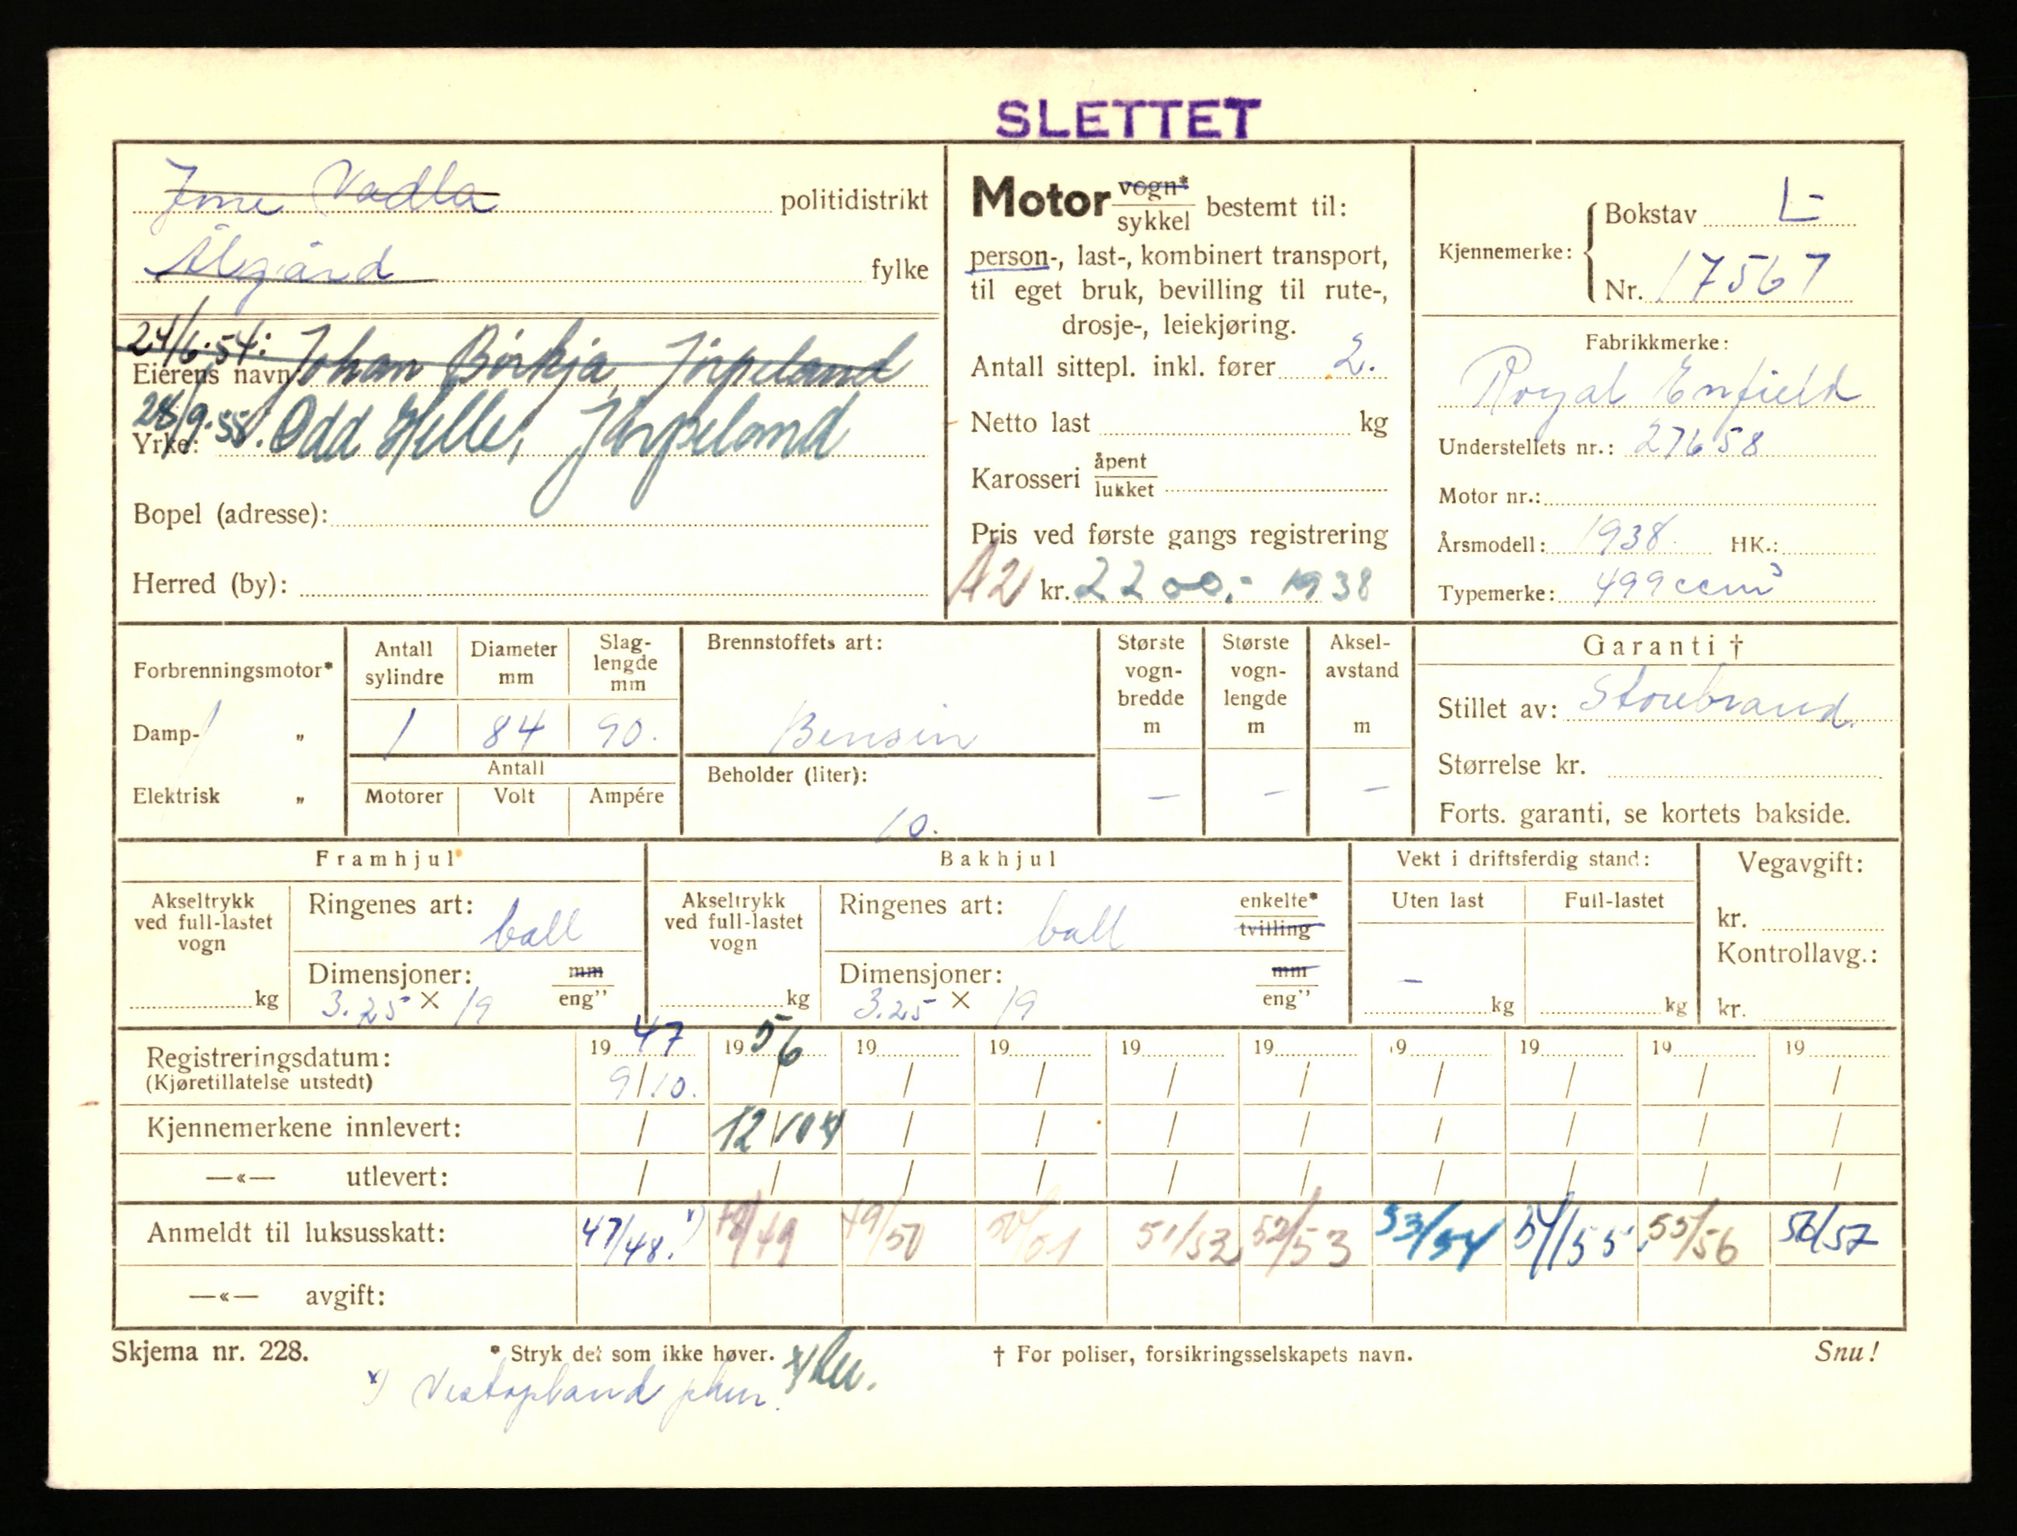 SLETTET
Jme Vadla politidistrikt
Ålgård fylke
24/6.54: Johan Börkja, Jörpeland
Eierens navn
28/9.55. Odd Helle, Jörpeland
Yrke:
Bopel (adresse):
Herred (by):
Motor vogn* / sykkel bestemt til:
person-, last-, kombinert transport,
til eget bruk, bevilling til rute-,
drosje-, leiekjøring.
Antall sittepl. inkl. fører 2.
Netto last kg
Karosseri åpent / lukket
Pris ved første gangs registrering
A2 kr. 2200.- 1938
Kjennemerke: Bokstav L-
Nr. 17567
Fabrikkmerke:
Royal Enfield
Understellets nr.: 27658
Motor nr.:
Årsmodell: 1938. HK.:
Typemerke: 499 ccm³
Forbrenningsmotor*
Damp- „
Elektrisk „
Antall sylindre Diameter mm Slag-lengde mm
1 84 90.
Antall
Motorer Volt Ampére
Brennstoffets art:
Bensin
Beholder (liter):
10.
Største vogn-bredde m
Største vogn-lengde m
Aksel-avstand m
— — —
Garanti †
Stillet av: Storebrand.
Størrelse kr.
Forts. garanti, se kortets bakside.
Framhjul
Akseltrykk ved full-lastet vogn
kg
Ringenes art: ball
Dimensjoner: mm / eng”
3.25 × 19
Bakhjul
Akseltrykk ved full-lastet vogn
kg
Ringenes art: ball enkelte* / tvilling
Dimensjoner: mm / eng”
3.25 × 19
Vekt i driftsferdig stand:
Uten last Full-lastet
— kg kg
Vegavgift:
kr.
Kontrollavg.:
kr.
Registreringsdatum: 1947 1956 19 19 19 19 19 19 19 19
(Kjøretillatelse utstedt) 9/10. / / / / / / / / /
Kjennemerkene innlevert: / 12/10 / / / / / / / /
—«— utlevert: / / / / / / / / / /
Anmeldt til luksusskatt: 47/48.x) 48/49 49/50 50/51 51/52 52/53 53/54 54/55 55/56 56/57
—«— avgift:
Skjema nr. 228. * Stryk det som ikke høver. † For poliser, forsikringsselskapets navn. Snu!
x)